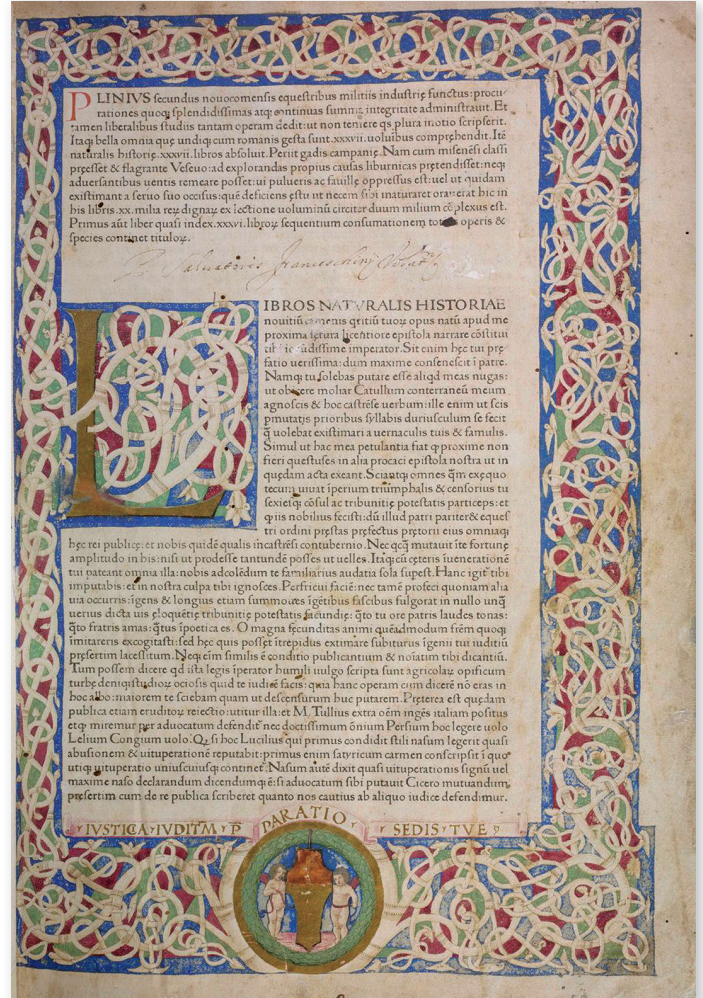 PLINIVS secundus nouocomensis equestribus militiis industrię functus: procu
rationes quoq; splendidissimas atq; continuas summa integritate administrauit. Et
tamen liberalibus studiis tantam operam dedit: ut non temere qs plura inotio scripserit.
Itaq; bella omnia quę undiq; cum romanis gesta sunt .xxxvii. uoluibus comprehendit. Ité
naturalis historię .xxxvii. libros absoluit. Periit gadis campanię. Nam cum misenési classi
pręesset & flagrante Veseuo: ad explorandas propius causas liburnicas prętendisset: neq;
aduersantibus uentis remeare posset: ui pulueris ac fauillę oppressus est: uel ut quidam
existimant a seruo suo occisus: qué deficiens ęstu ut necem sibi inaturaret orauerat hic in
his libris .xx. milia reꝝ dignaꝝ ex lectione uoluminū circiter duum milium cōplexus est.
Primus aūt liber quasi index .xxxvi. libroꝝ sequentium consumationem totius operis &
species continet tituloꝝ.
Saluatoris
LIBROS NATVRALIS HISTORIAE
nouitiū camenis qritiū tuoꝝ opus natū apud me
proxima fętura licentiore epistola narrare cōstitui
tibi iocūdissime imperator. Sit enim hęc tui pre
fatio uerissima: dum maxime consenescit ī patre.
Namq; tu solebas putare esse aliqd meas nugas:
ut obiicere moliar Catullum conterraneū meum
agnoscis & hoc castrēse uerbum: ille enim ut scis
pmutatis prioribus syllabis duriusculum se fecit
q̄ uolebat existimari a uernaculis tuis & famulis.
Simul ut hac mea petulantia fiat q̄ proxime non
fieri questus es in alia procaci epistola nostra ut in
quędam acta exeant. Sciātq; omnes q̄m exęquo
tecum uiuat īperium triūmphalis & censorius tu
sexiesq; cōsul ac tribunitię potestatis particeps: et
q iis nobilius fecisti: dū illud patri pariter & eques
tri ordini pręstas pręfectus pretorii eius omniaq;
hęc rei publicę: et nobis quidē qualis incastrēsi contubernio. Nec qcq̄ mutauit īte fortunę
amplitudo in his: nisi ut prodesse tantundē posses ut uelles. Itaq; cū cęteris īuenerationē
tui pateant omnia illa: nobis adcolēdum te familiarius audatia sola supest. Hanc igit̄ tibi
imputabis: et in nostra culpa tibi ignosces. Perfricui faciē: nec tamē profeci quoniam alia
uia occurris: īgens & longius etiam summoues īgētibus fascibus fulgorat in nullo unq̄
uerius dicta uis eloquētię tribunitię potestatis facundię: q̄to tu ore patris laudes tonas:
q̄to fratris amas: q̄tus īpoetica es. O magna fecunditas animi quēadmodum frēm quoq;
imitareris excogitasti: sed hęc quis posset ītrepidus extimare subiturus īgenii tui iuditiū
pręsertim lacessitum. Neq; eīm similis ē conditio publicantium & noīatim tibi dicantiū.
Tum possem dicere qd ista legis īperator humili uulgo scripta sunt agricolaꝝ opificum
turbę deniq; studioꝝ ociosis quid te iudicē facis: quia hanc operam cum dicerē nō eras in
hoc albo: maiorem te sciebam quam ut descensurum huc putarem. Pręterea est quędam
publica etiam eruditoꝝ reiectio: utitur illa: et M. Tullius extra oēm ingēs italiam positus
etq; miremur per aduocatum defendit̄ nec doctissimum ōnium Persium hoc legere uolo
Lelium Congium uolo. Q; si hoc Lucilius qui primus condidit stili nasum legerit quasi
abusionem & uituperationē reputabit: primus enim satyricum carmen conscripsit ī quo
utiq; uituperatio uniuscuiusq; continet̄. Nasum autē dixit quasi uituperationis signū uel
maxime naso declarandum dicendumq; ē: si aduocatum sibi putauit Cicero mutuandum
pręsertim cum de re publica scriberet quanto nos cautius ab aliquo iudice defendimur.
IVSTICA · IVDITM · P PARATIO SEDIS · TVE